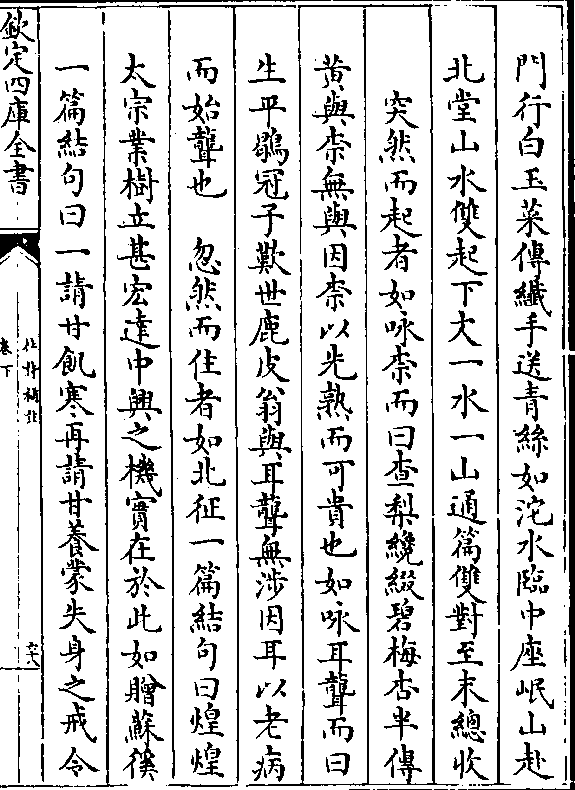 門行白玉菜傳纎手送青絲如沱水臨中座岷山赴
北堂山水雙起下文一水一山通篇雙對至末總收
突然而起者如咏柰而曰查梨纔綴碧梅杏半傳
黄與柰無與因柰以先熟而可貴也如咏耳聾而曰
生平鶡冠子歎世鹿皮翁與耳聾無涉因耳以老病
而始聾也 忽然而住者如北征一篇結句曰煌煌
太宗業樹立甚宏達中興之機實在於此如贈蘇徯
一篇結句曰一請甘飢寒再請甘養蒙失身之戒令
欽定四庫全書
卷下